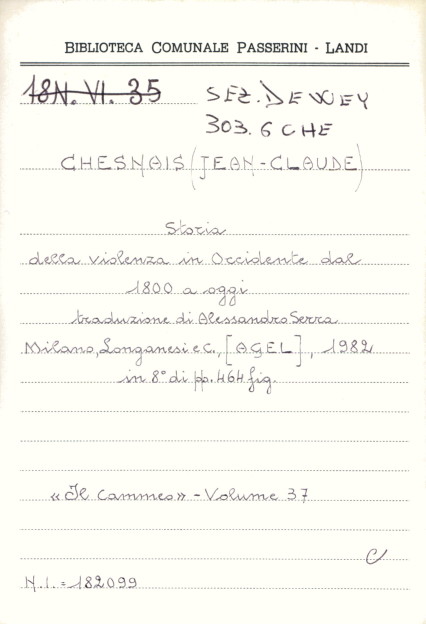 BIBLIOTECA COMUNALE PASSERINI - LANDI
18N. VI. 35 SEZ. DEWEY
303.6 CHE
CHESNAIS (JEAN-CLAUDE)
Storia
della violenza in Occidente dal
1800 a oggi
traduzione di Alessandro Serra
Milano, Longanesi e C., [AGEL], 1982
in 8° di pp. 464 fig.
«Il Cammeo» - Volume 37
C
N.I. = 182099